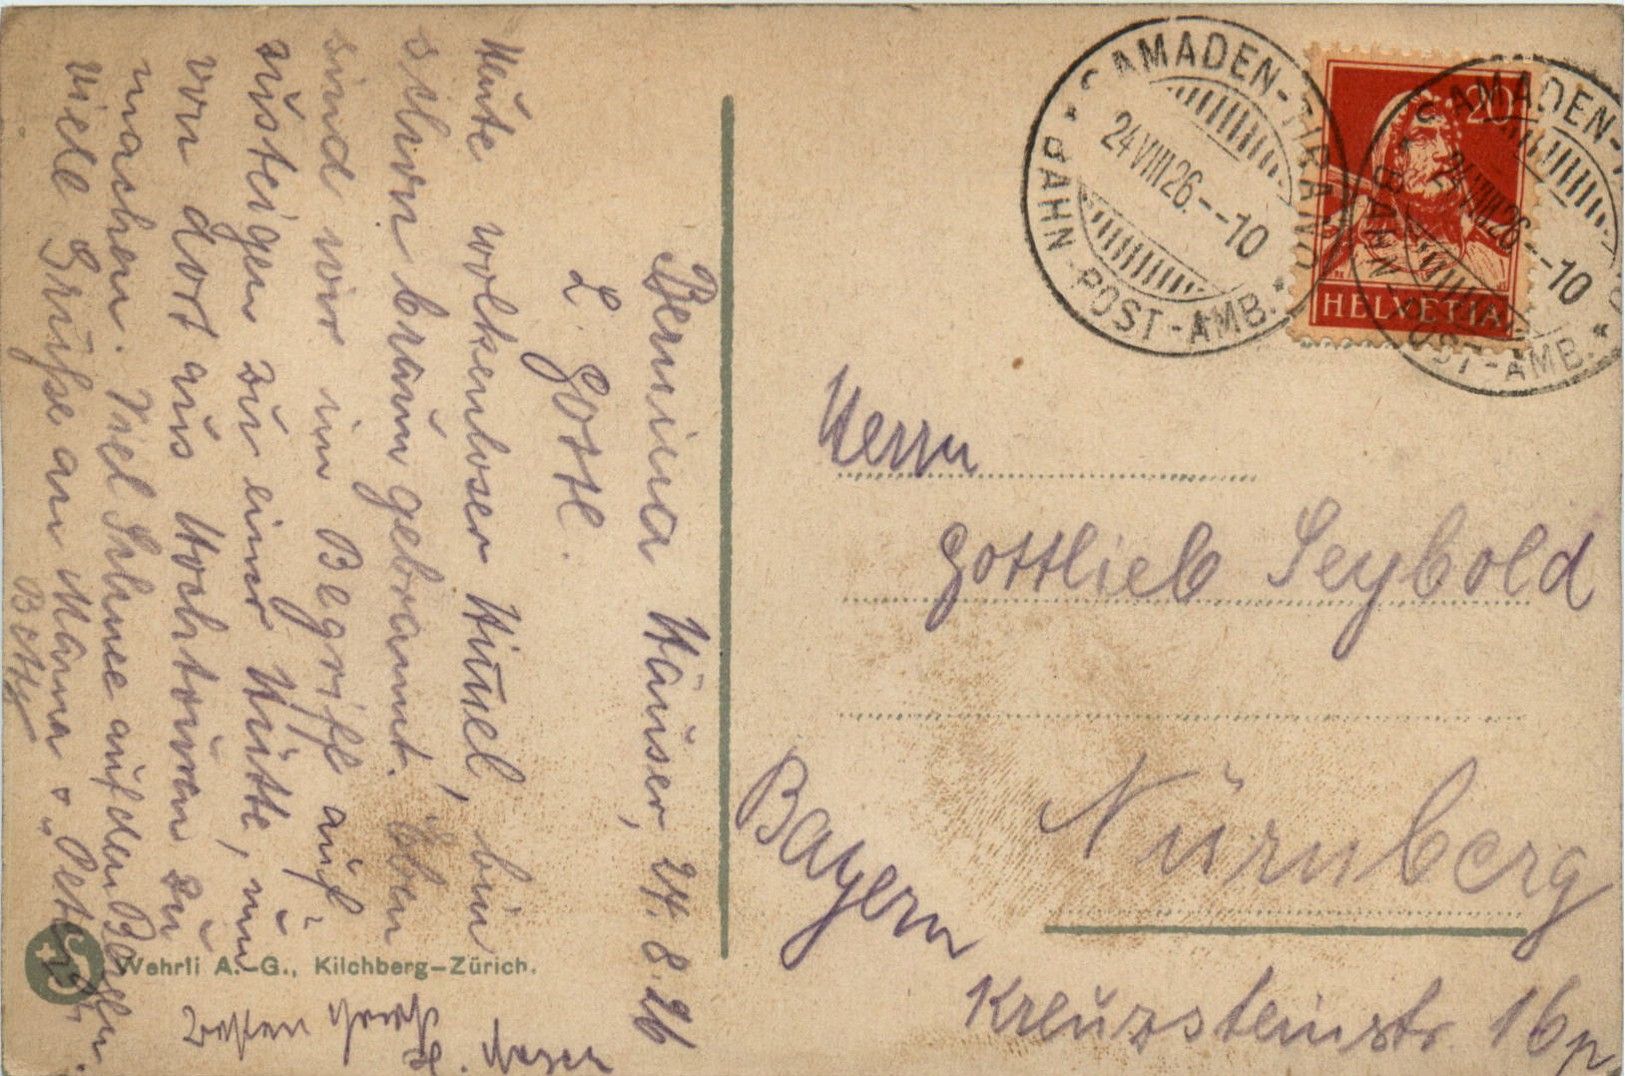 Bernina Häuser, 24.8.26
L. Gottl.
Heute wolkenloser Himel, bin
schon braun gebrannt. Eben
sind wir im Begriff auf
zusteigen zu einer Hütte, um
von dort aus Hochtouren zu
machen. Viel Schnee auf den Bergen.
Viele Grüße an Mama u.
Betty
Besten Gruß
SAMADEN-TIRANO
24 VIII 26.--10
BAHN-POST-AMB.
20
HELVETIA
SAMADEN-
24 VIII 26.--10
BAHN-POST-AMB.
Herrn
Gottlieb Seybold
Nürnberg
Bayern
Kreuzsteinstr. 16
Wehrli A.-G., Kilchberg-Zürich.